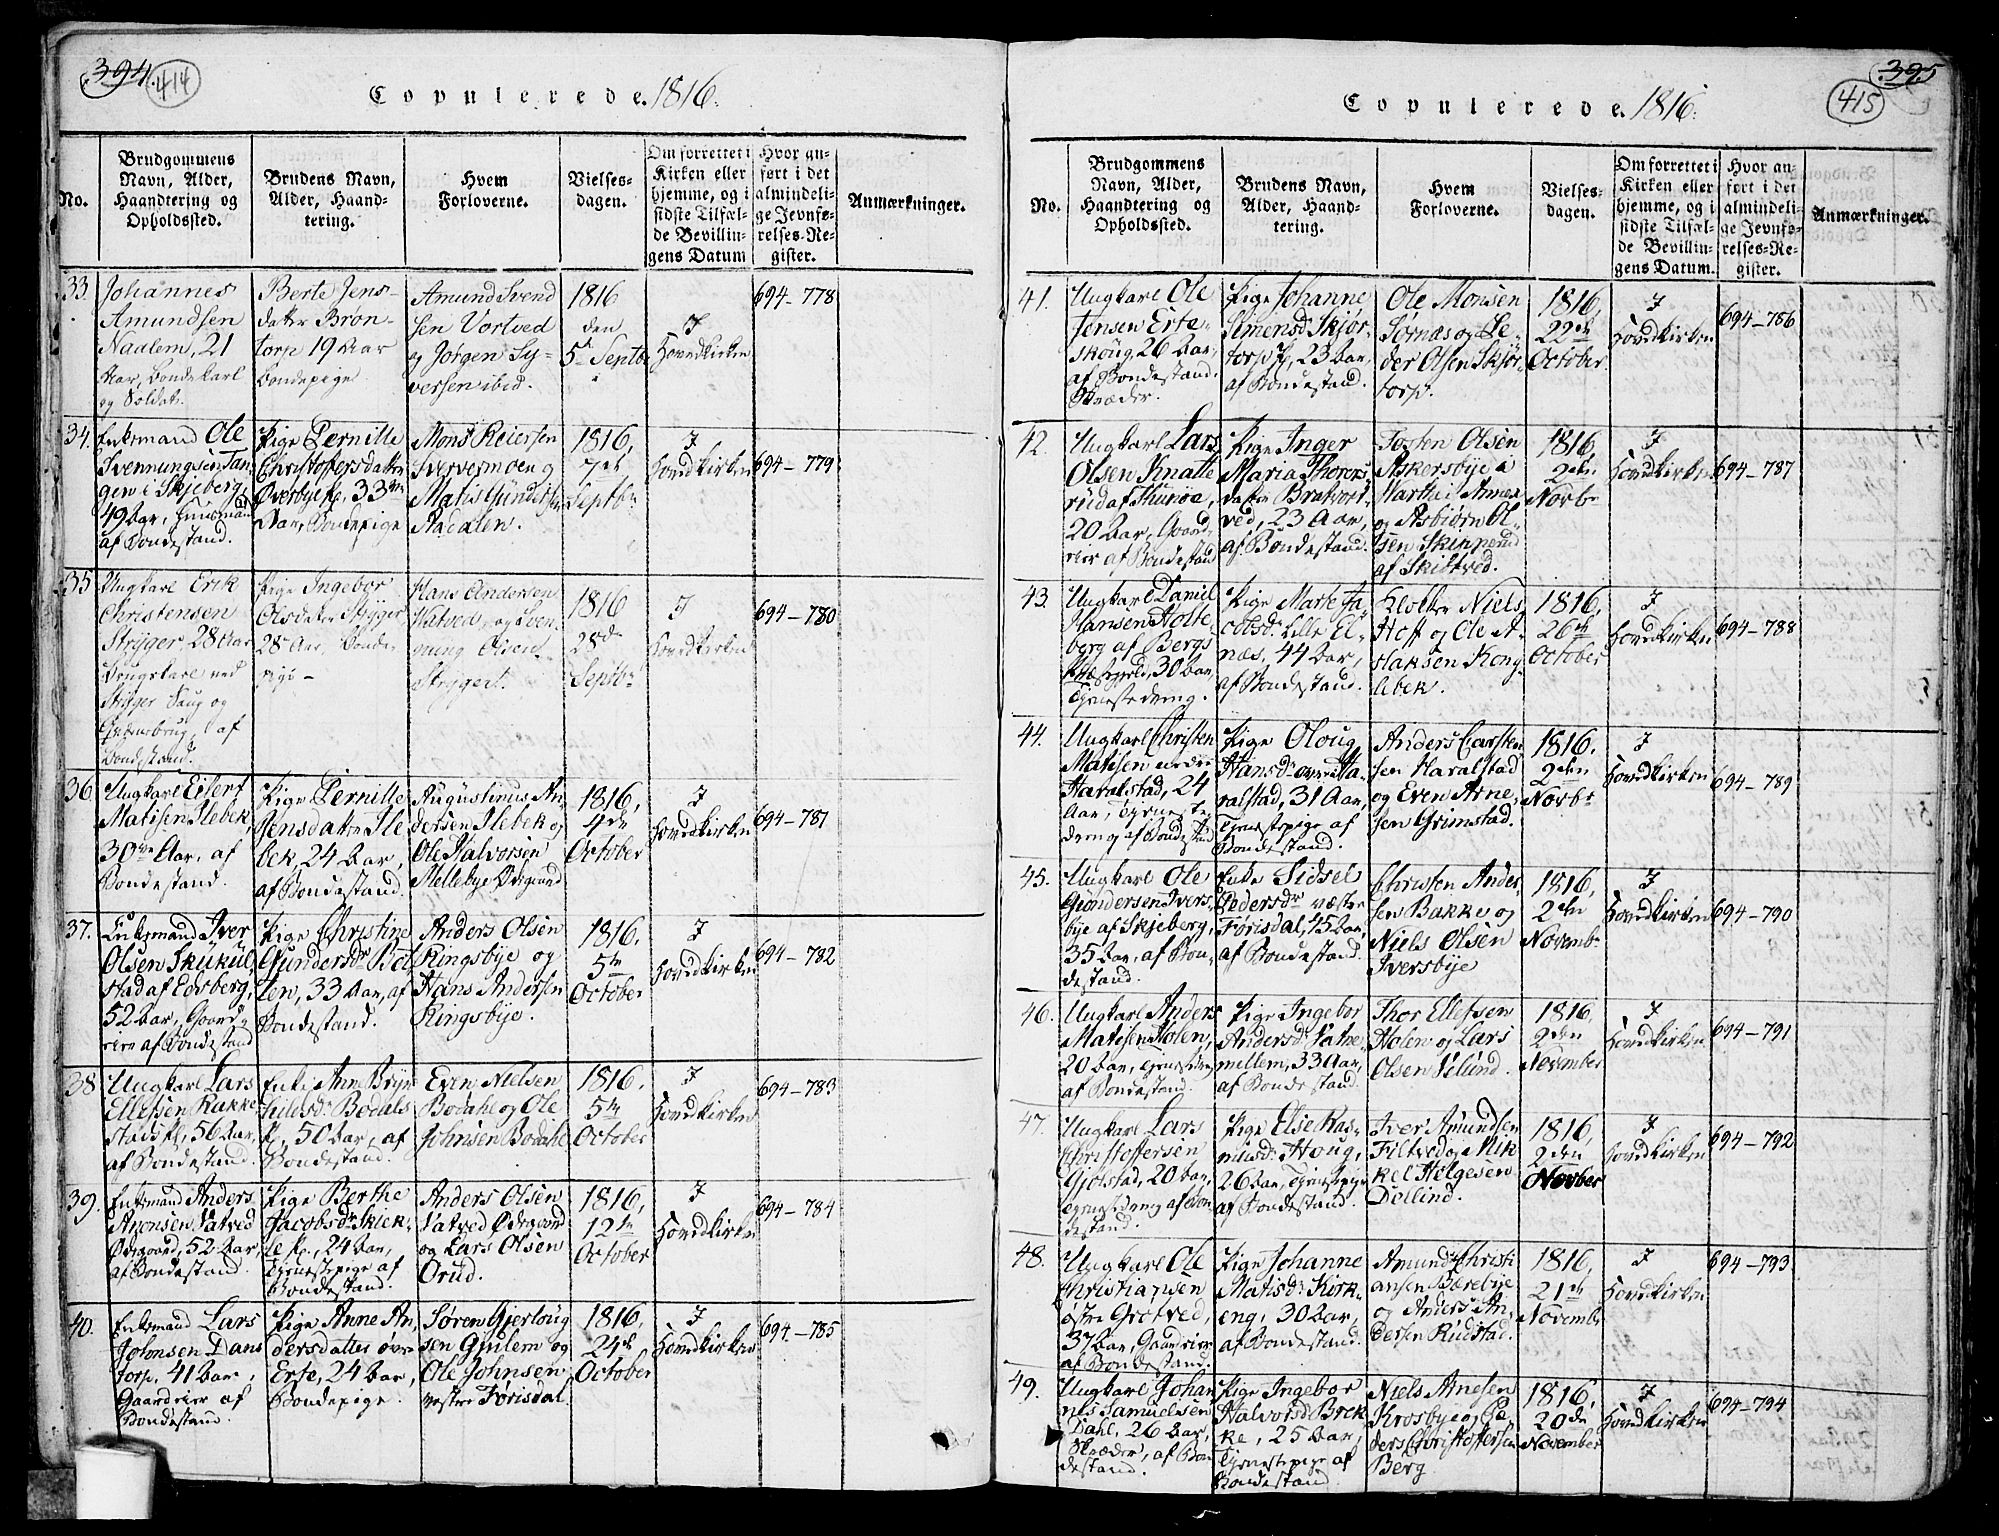 394.
414
Copulerede. 1816.
No.
Brudgommens
Navn, Alder,
Haandtering og
Opholdssted.
Brudens Navn,
Alder, Haand-
tering.
Hvem
Forloverne.
Vielses-
dagen.
Om forrettet i
Kirken eller
hjemme, og i
sidste Tilfæl-
de Bevillin-
gens Datum
Hvor an-
ført i det
almindeli-
ge Jevnfø-
relses-Re-
gister.
Anmærkninger.
33.
Johannes
Amundsen
Naalem, 21
Aar, Bondekarl
og Soldat.
Berte Jens-
datter Bron-
torp 19 Aar
Bondepige
Amund Svend
sen Vortved
og Jørgen Sy-
versen ibid.
1816
den
5te Septbr
I
Hovedkirken
694-778
34.
Enkemand Ole
Svennungsen Tan-
gen i Skjeberg,
49 Aar, Huusmand
af Bondestand.
Pige Pernille
Christoffersdatter
Øversbye Pl, 33
Aar, Bondepige
Mons Reiersen
Svervemoen og
Matis Gundersen
Aadalen.
1816,
7de
Septbr
I
Hovedkirken
694-779
35
Ungkarl Erik
Christensen
Stryger, 28 Aar
Brugskarl ved
Stryger Saug og
af
Bondestand.
Pige Ingebor
Olsdatter Stryger
28 Aar, Bonde
pige -
Hans Andersen
Vatved, og Sven
nung Olsen
Strygert.
1816
28de
Septbr
I
Hovedkirken
694-780
36
Ungkarl Eilert
Matisen Ilebek,
30 Aar, af
Bondestand.
Pige Pernille
Jensdatter Ile
bek, 24 Aar,
af Bondestand.
Augustinus An
dersen Ilebek og
Ole Halvorsen
Mellebye Ødegaard
1816,
4de
October
I
Hovedkirken
694-781
37.
Enkemand Iver
Olsen Skukul
stad af Edsberg,
52 Aar, Gaard
eier af Bondestand
Pige Christine
Gundersdr Bol
ten, 33 Aar, af
Bondestand.
Anders Olsen
Ringsbye og
Hans Andersen
Ringsbye.
1816.
5te
October
I
Hovedkirken
694-782
38
Ungkarl Lars
Ellefsen Rakke
stads Pl, 56 Aar,
af Bondestand.
Enke Anne Bryn
hildsdr Bodals
Pl, 50 Aar, af
Bondestand.
Even Nielsen
Bodahl og Ole
Johnsen Bodahl
1816.
5te
October
I
Hovedkirken
694-783
39.
Enkemand Anders
Aronsen Vatved
Ødegaard, 52 Aar,
af Bondestand.
Pige Berthe
Jacobsdr Skiek-
le Pl., 24 Aar,
Tjenestepige af
Bondestand.
Anders Olsen
Vatved Ødegaard
og Lars Olsen
Orud.
1816,
12te
October
I
Hovedkirken
694-784
40.
Enkemand Lars
Johnsen Dans
torp, 41 Aar,
Gaardeier af
Bondestand.
Pige Anne An,
dersdatter øvre
Erte, 24 Aar,
Bondepige.
Søren Gjerloug
sen Gjulem og
Ole Johnsen
vestre Førisdal
1816,
24de
October
I
Hovedkirken
694-785
395
415
Copulerede. 1816.
No.
Brudgommens
Navn, Alder,
Haandtering og
Opholdssted.
Brudens Navn,
Alder, Haand-
tering.
Hvem
Forloverne.
Vielses-
dagen.
Om forrettet i
Kirken eller
hjemme, og i
sidste Tilfæl-
de Bevillin-
gens Datum.
Hvor an-
ført i det
almindeli-
ge Jevnfø-
relses-Re-
gister.
Anmærkninger.
41.
Ungkarl Ole
Jensen Erte-
skoug, 26 Aar,
af Bondestand.
Skræder.
Pige Johanne
Simensdr Skjør-
torp Pl, 23 Aar,
af Bondestand.
Ole Monsen
Sørnæs og Pe-
der Olsen Skjør-
torp.
1816,
22de
October
I
Hovedkirken
694-786
42.
Ungkarl Lars
Olsen Knatte
rud af Thunøe,
20 Aar, Gaard-
eier af Bondestand
Pige Inger
Maria Thores-
datter Bratvort
ved, 23 Aar,
af Bondestand.
Tosten Olsen
Askersbye i
Vartheig Annex
og Asbiørn Ol-
sen Skippenud
af Skiptved.
1816,
2den
Novbr
I
Hovedkirken
694-787
43.
Ungkarl Daniel
Hansen Holte
berg af Bergs
Præstegield, 30 Aar,
Tjenestedreng.
Pige Marte Ja-
cobsdr Lille El-
næs, 44 Aar,
af Bondestand.
Klokker Niels
Hoff og Ole A-
slaksen Kong
lebek.
1816,
26de
October
I
Hovedkirken
694-788
44.
Ungkarl Christen
Matisen nedre
Haralstad, 24
Aar, Tjeneste
dreng af Bondestand
Pige Oloug
Hansdr øvre Ha-
ralstad, 31 Aar,
Tjenestepige af
Bondestand.
Anders Carsten
sen Haralstad
og Even Arne,
sen Grimstad.
1816.
2den
Novbr
I
Hovedkirken
694-789
45.
Ungkarl Ole
Gundersen Ivers-
bye af Skjeberg,
35 Aar, af Bon-
destand.
Enke Sidsel
Pedersdr væstre
Førisdal, 45 Aar,
af Bondestand.
Christen Ander,
sen Bakke og
Niels Olsen
Iversbye
1816,
2den
Novembr
I
Hovedkirken
694-790
46.
Ungkarl Anders
Matisen Holen,
20 Aar, Tjenestedreng
af Bondestand.
Pige Ingebor
Andersdr Vatne
mellem, 33 Aar,
af Bondestand.
Thor Ellefsen
Holen og Lars
Olsen Velund.
1816,
2den
November
I
Hovedkirken
694-791
47.
Ungkarl Lars
Christoffersen
Gjølstad, 20 Aar,
Tjenestedreng af Bon
destand.
Pige Else Ras-
musdr Houg,
26 Aar, Tjenestepige
af Bondestand.
Iver Amundsen
Filtved og Mik
kel Helgesen
Døllind.
1816,
2den
Novber
I
Hovedkirken
694-792
48.
Ungkarl Ole
Christiansen
østre Gretved,
37 Aar, Gaardeier
af Bondestand.
Pige Johanne
Matisdr Kirk-
eng, 30 Aar,
af Bondestand.
Amund Christi
ansen Børebye
og Anders An,
dersen Rudstad.
1816,
21de
Novembr
I
Hovedkirken
694-793
49.
Ungkarl Johan
nes Samuelsen
Dahl, 26 Aar,
Skræder, af Bon
destand.
Pige Ingebor
Halvorsdr Brek
ke, 25 Aar,
Tjenestepige af
Bondestand.
Niels Arnesen
Krosbye og Pe-
der Christoffersen
Berg.
1816,
20de
November
I
Hovedkirken
694-794